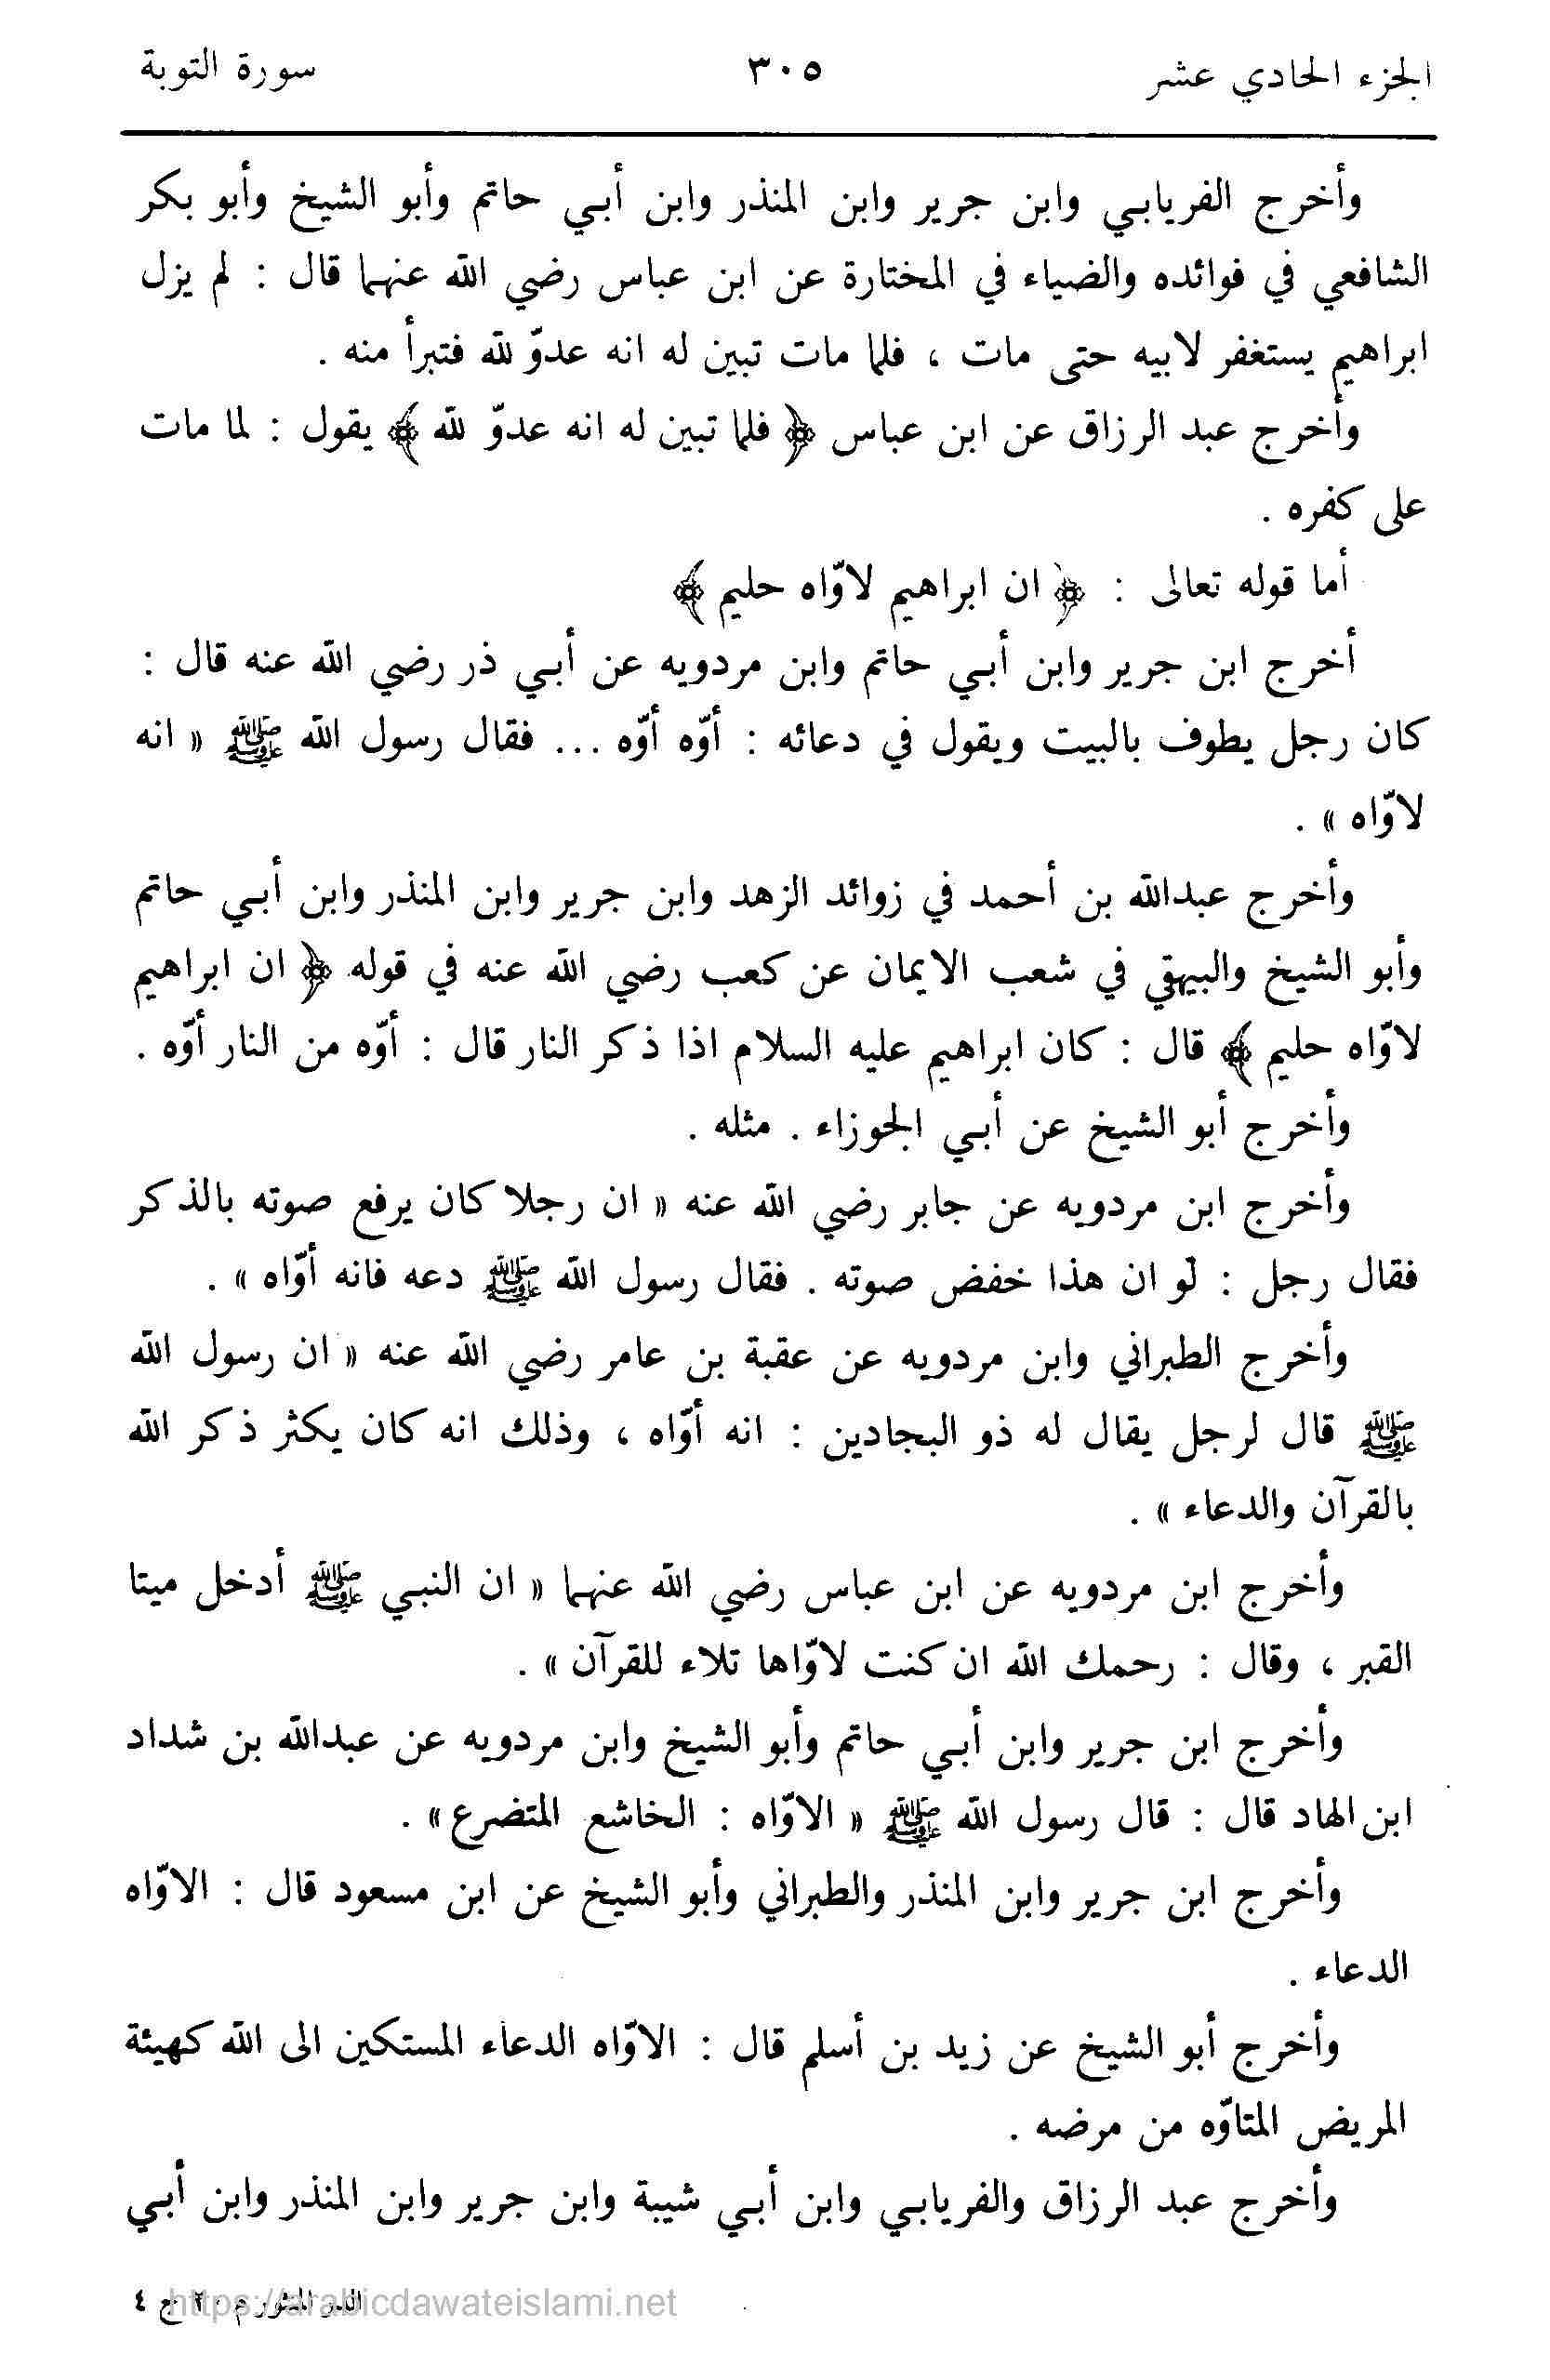 الجزء الحادي عشر ٣٠٥ سورة التوبة
وأخرج الفريابي وابن جرير وابن المنذر وابن أبي حاتم وأبو الشيخ وأبو بكر
الشافعي في فوائده والضياء في المختارة عن ابن عباس رضي الله عنهما قال : لم يزل
ابراهيم يستغفر لابيه حتى مات ، فلما مات تبين له انه عدوّ لله فتبرأ منه .
وأخرج عبد الرزاق عن ابن عباس ﴿ فلما تبين له انه عدوّ لله ﴾ يقول : لما مات
على كفره .
أما قوله تعالى : ﴿ ان ابراهيم لاوّاه حليم ﴾
أخرج ابن جرير وابن أبي حاتم وابن مردويه عن أبي ذر رضي الله عنه قال :
كان رجل يطوف بالبيت ويقول في دعائه : أوّه أوّه ... فقال رسول الله ﷺ « انه
لاوّاه » .
وأخرج عبدالله بن أحمد في زوائد الزهد وابن جرير وابن المنذر وابن أبي حاتم
وأبو الشيخ والبيهقي في شعب الايمان عن كعب رضي الله عنه في قوله ﴿ ان ابراهيم
لاوّاه حليم ﴾ قال : كان ابراهيم عليه السلام اذا ذكر النار قال : أوّه من النار أوّه .
وأخرج أبو الشيخ عن أبي الجوزاء . مثله .
وأخرج ابن مردويه عن جابر رضي الله عنه « ان رجلا كان يرفع صوته بالذكر
فقال رجل : لو ان هذا خفض صوته . فقال رسول الله ﷺ دعه فانه أوّاه » .
وأخرج الطبراني وابن مردويه عن عقبة بن عامر رضي الله عنه « ان رسول الله
ﷺ قال لرجل يقال له ذو البجادين : انه أوّاه ، وذلك انه كان يكثر ذكر الله
بالقرآن والدعاء » .
وأخرج ابن مردويه عن ابن عباس رضي الله عنهما « ان النبي ﷺ أدخل ميتا
القبر ، وقال : رحمك الله ان كنت لاوّاها تلاء للقرآن » .
وأخرج ابن جرير وابن أبي حاتم وأبو الشيخ وابن مردويه عن عبدالله بن شداد
ابن الهاد قال : قال رسول الله ﷺ « الاوّاه : الخاشع المتضرع » .
وأخرج ابن جرير وابن المنذر والطبراني وأبو الشيخ عن ابن مسعود قال : الاوّاه
الدعاء .
وأخرج أبو الشيخ عن زيد بن أسلم قال : الاوّاه الدعاء المستكين الى الله كهيئة
المريض المتاوّه من مرضه .
وأخرج عبد الرزاق والفريابي وابن أبي شيبة وابن جرير وابن المنذر وابن أبي
الدر المنثور م ٢٠ ج ٤
https://arabicdawateislami.net